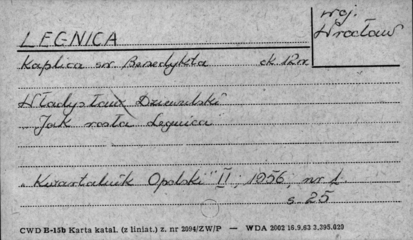 woj.
Wrocław
LEGNICA
Kaplica św. Benedykta ok. 12 w.
Władysław Dziewulski
Jak rosła Legnica
"Kwartalnik Opolski" II, 1956, nr 1
s. 25
CWD B-15b Karta katal. (z liniat.) z. nr 2094/ZW/P — WDA 2002 16.9.63 3.395.020